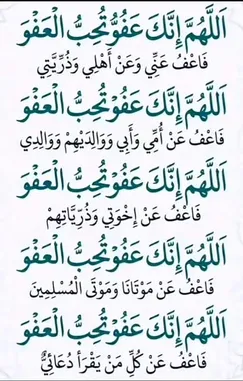 اَللَّهُمَّ إِنَّكَ عَفُوٌّ تُحِبُّ الْعَفْوَ
فَاعْفُ عَنِّي وَعَنْ أَهْلِي وَذُرِّيَّتِي
اَللَّهُمَّ إِنَّكَ عَفُوٌّ تُحِبُّ الْعَفْوَ
فَاعْفُ عَنْ أُمِّي وَأَبِي وَوَالِدَيْهِمْ وَوَالِدِي
اَللَّهُمَّ إِنَّكَ عَفُوٌّ تُحِبُّ الْعَفْوَ
فَاعْفُ عَنْ إِخْوَتِي وَذُرِّيَّاتِهِمْ
اَللَّهُمَّ إِنَّكَ عَفُوٌّ تُحِبُّ الْعَفْوَ
فَاعْفُ عَنْ مَوْتَانَا وَمَوْتَى الْمُسْلِمِينَ
اَللَّهُمَّ إِنَّكَ عَفُوٌّ تُحِبُّ الْعَفْوَ
فَاعْفُ عَنْ كُلِّ مَنْ يَقْرَأُ دُعَائِيْ